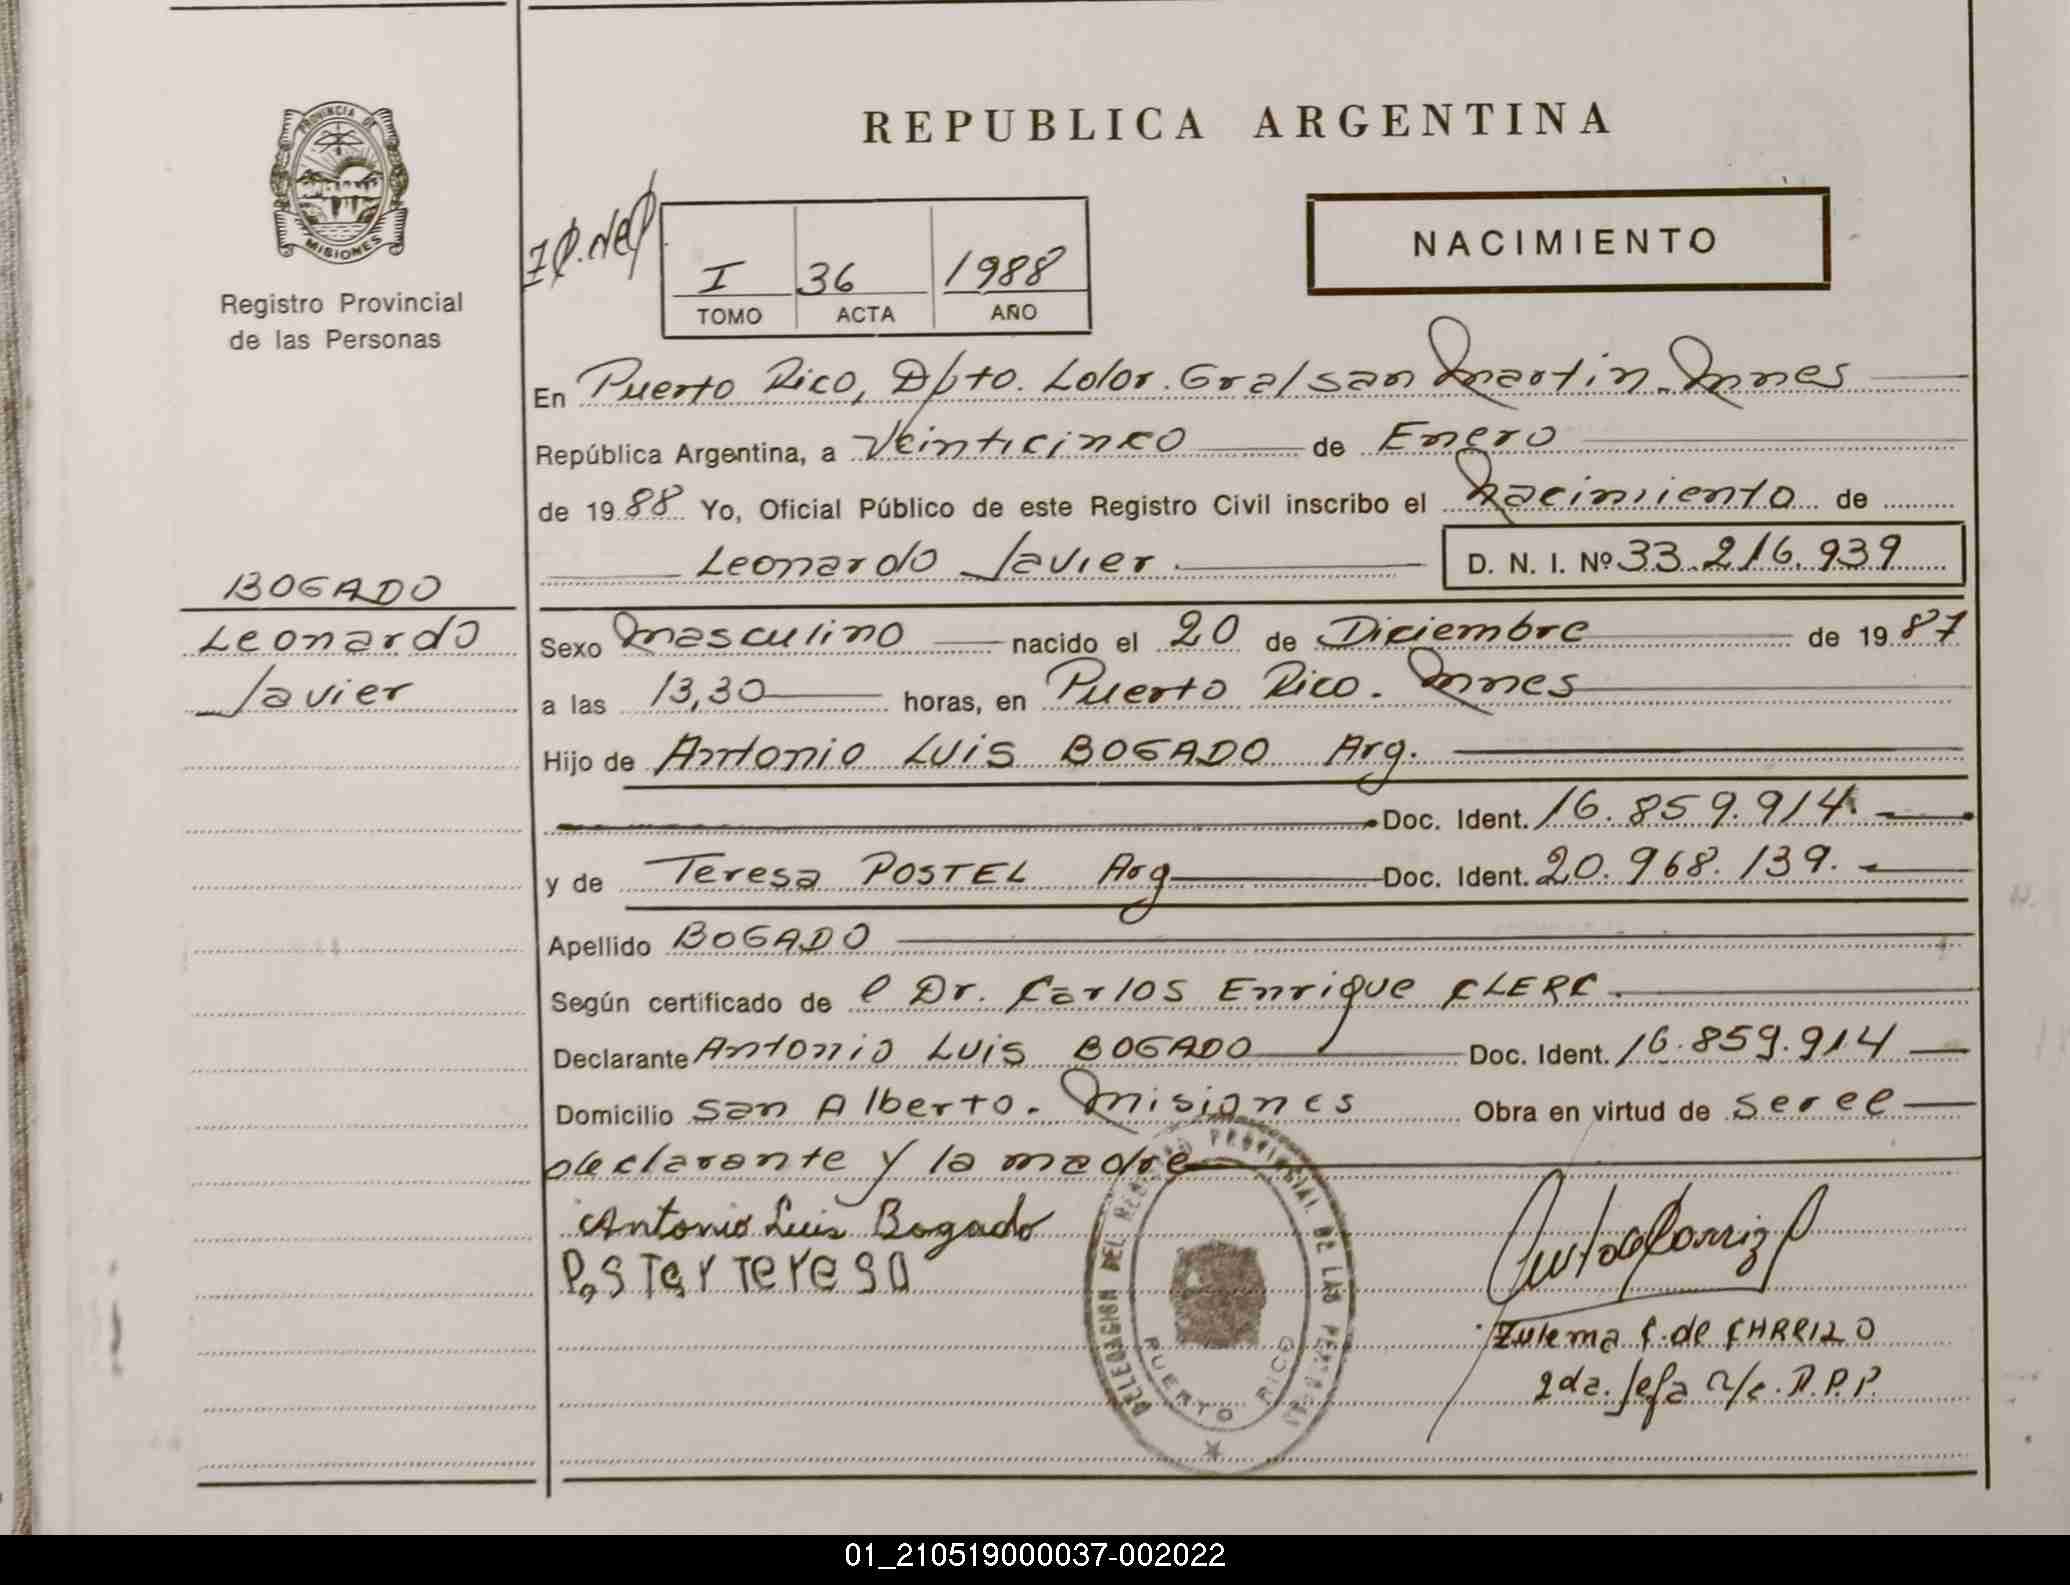 REPUBLICA ARGENTINA
PROVINCIA DE
MISIONES
Registro Provincial
de las Personas
NACIMIENTO
I 36 1988
TOMO ACTA AÑO
En Puerto Rico, Dpto. Ldor. Gral San Martin. Mnes
República Argentina, a Veinticinco de Enero
de 1988 Yo, Oficial Público de este Registro Civil inscribo el Nacimiento de
Leonardo Javier D. N. I. Nº 33.216.939
BOGADO
Leonardo
Javier
Sexo Masculino nacido el 20 de Diciembre de 1987
a las 13,30 horas, en Puerto Rico. Mnes
Hijo de Antonio Luis BOGADO Arg.
Doc. Ident. 16.859.914.
y de Teresa POSTEL Arg Doc. Ident. 20.968.139.
Apellido BOGADO
Según certificado de el Dr. Carlos Enrique CLERC.
Declarante Antonio Luis BOGADO Doc. Ident. 16.859.914
Domicilio San Alberto. Misiones Obra en virtud de ser el
declarante y la madre
Antonio Luis Bogado
Poster teresa
DELEGACION DEL REGISTRO PROVINCIAL DE LAS PERSONAS
PUERTO RICO
Zulema C. de CARRIZO
2da. Jefa R.P.P.
01_210519000037-002022